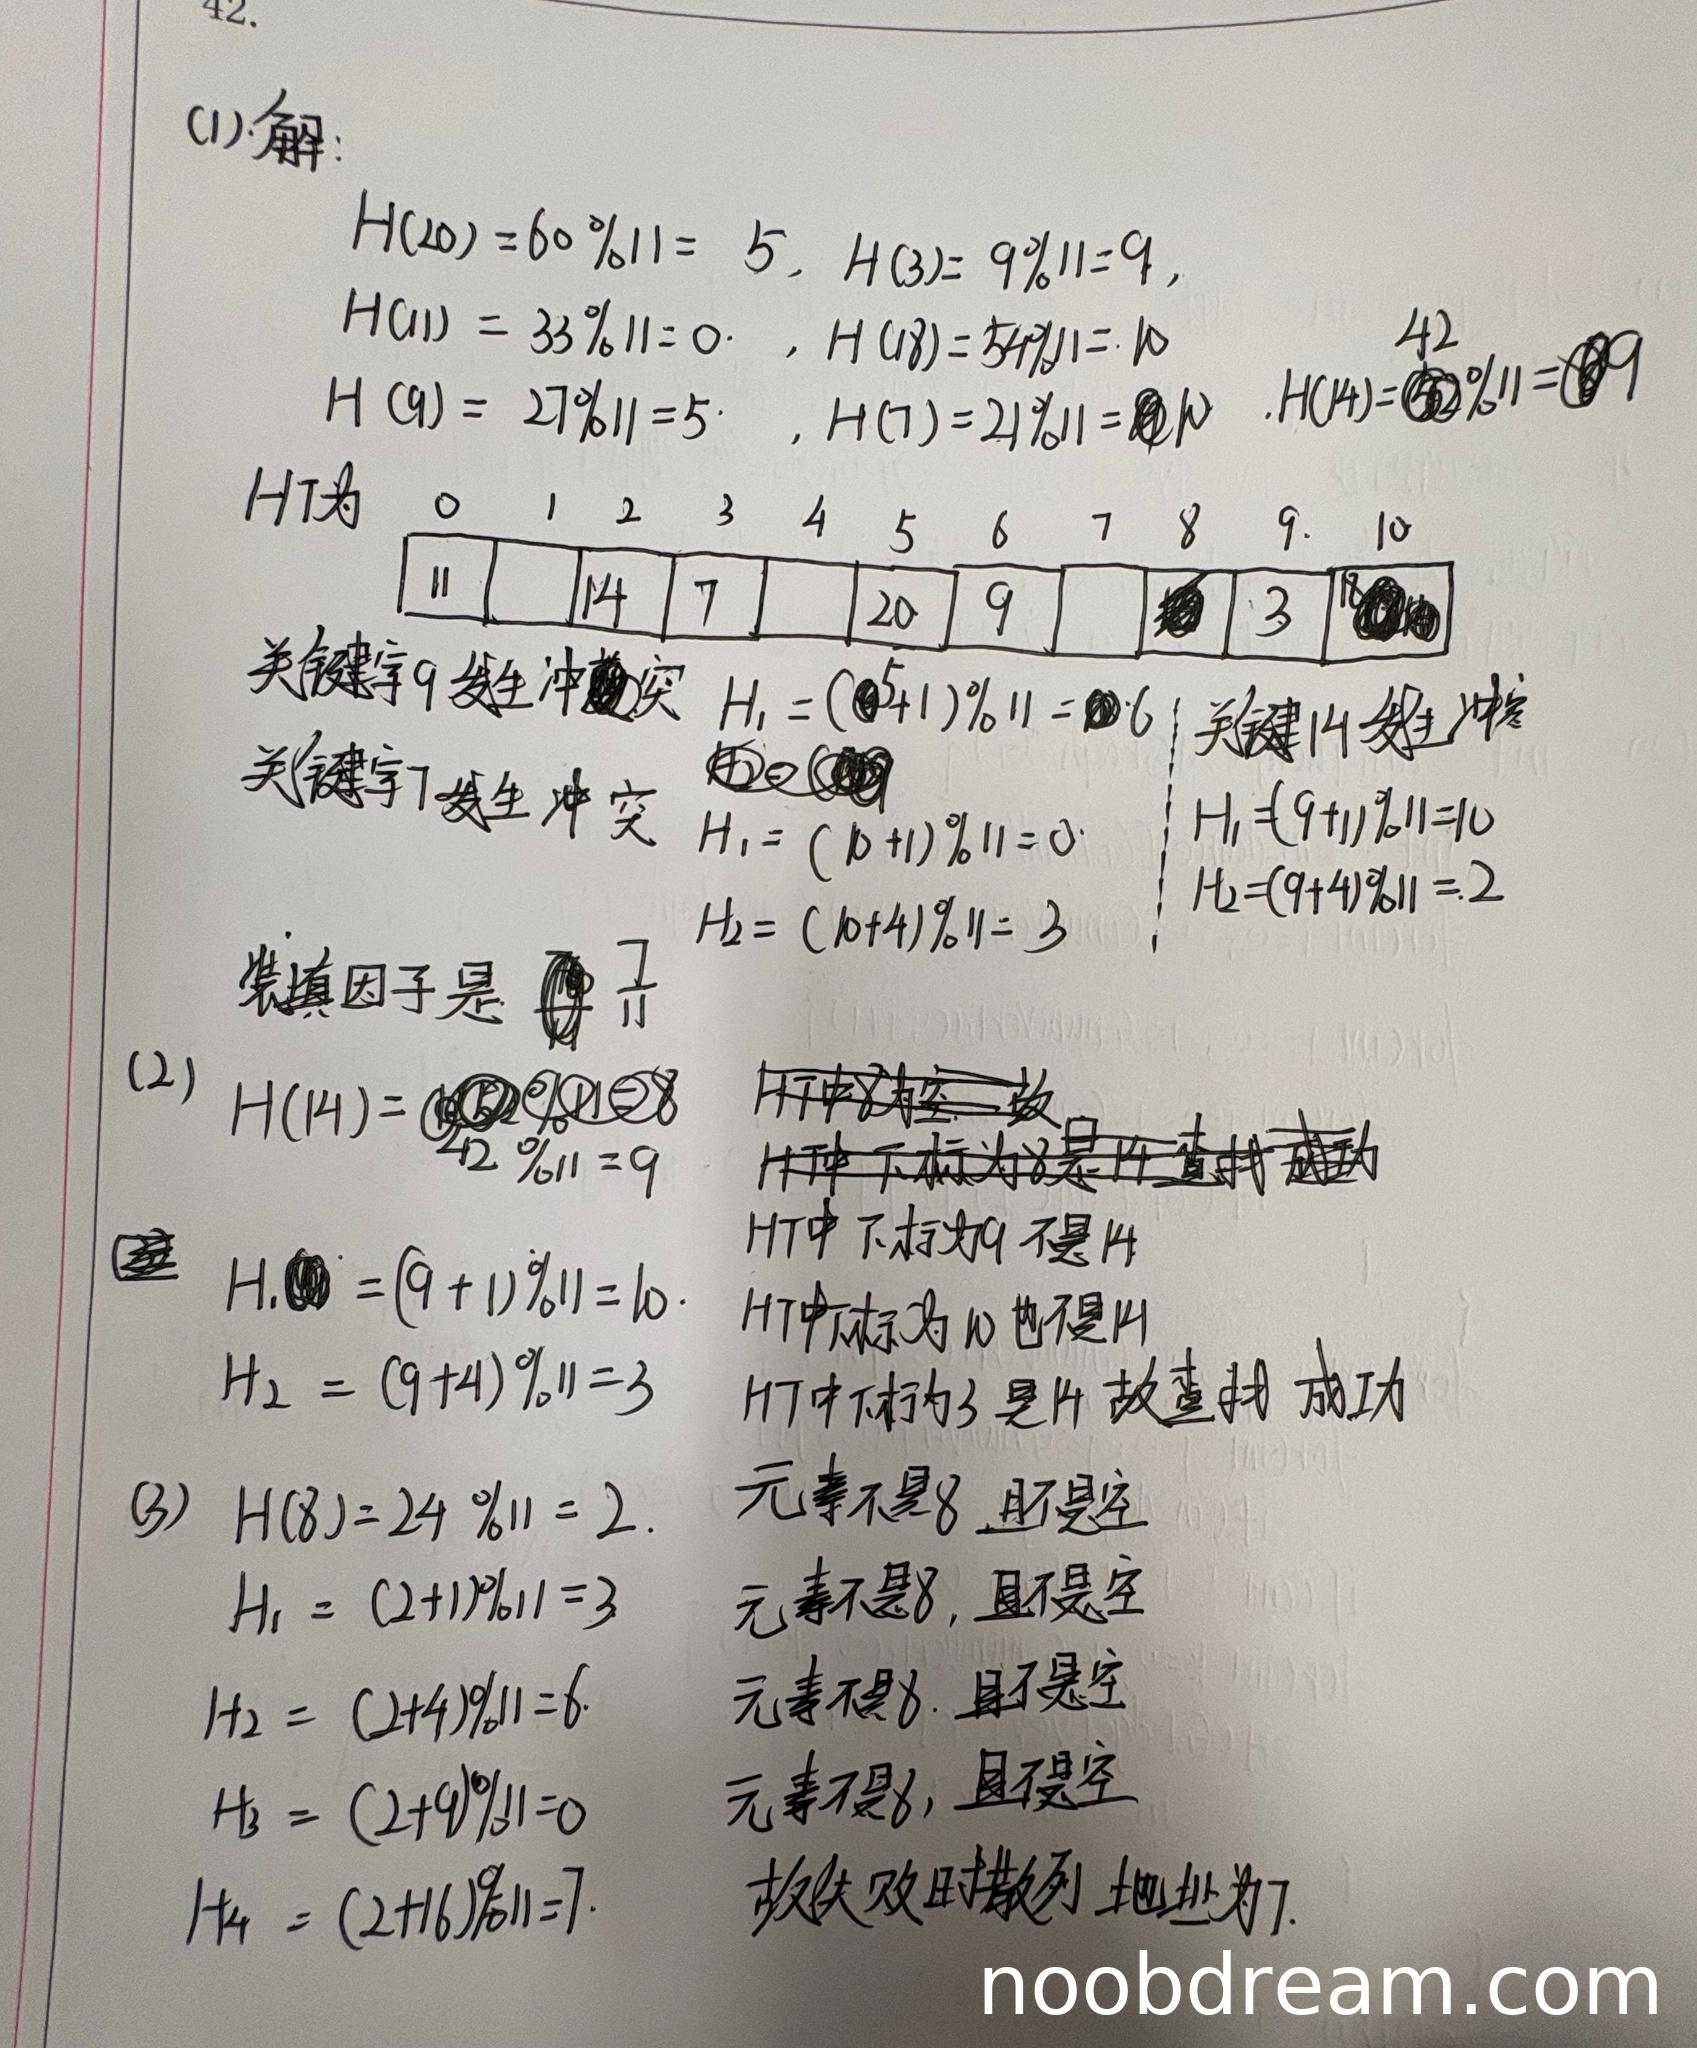 42.
(1).解:
H(20)=60%11= 5, H(3)= 9%11=9,
H(11) = 33%11=0. , H(18)=54%11=.10
42
H(9)= 27%11=5. , H(7)=21%11= 10 .H(14)= %11= 9
HT为 0 1 2 3 4 5 6 7 8 9. 10
11 14 7 20 9 3 18
关键字9发生冲突 H₁=(5+1)%11= 6 关键14发生冲突
关键字7发生冲突
H₁= (10+1)%11=0. H₁=(9+1)%11=10
H₂= (10+4)%11= 3 H₂=(9+4)%11=.2
装填因子是 7/11
(2) H(14)= HT中8为空 故
42%11=9 HT中下标为8是14 查找成功
HT中下标为9不是14
H₁ =(9+1)%11=10. HT中下标为10也不是14
H₂ = (9+4)%11=3 HT中下标为3是14 故查找 成功
(3) H(8)=24%11=2. 元素不是8 且不是空
H₁ = (2+1)%11=3 元素不是8, 且不是空
H₂ = (2+4)%11=6. 元素不是8. 且不是空
H₃ = (2+9)%11=0 元素不是8, 且不是空
H₄ = (2+16)%11=7. 故失败时散列地址为7.
noobdream.com